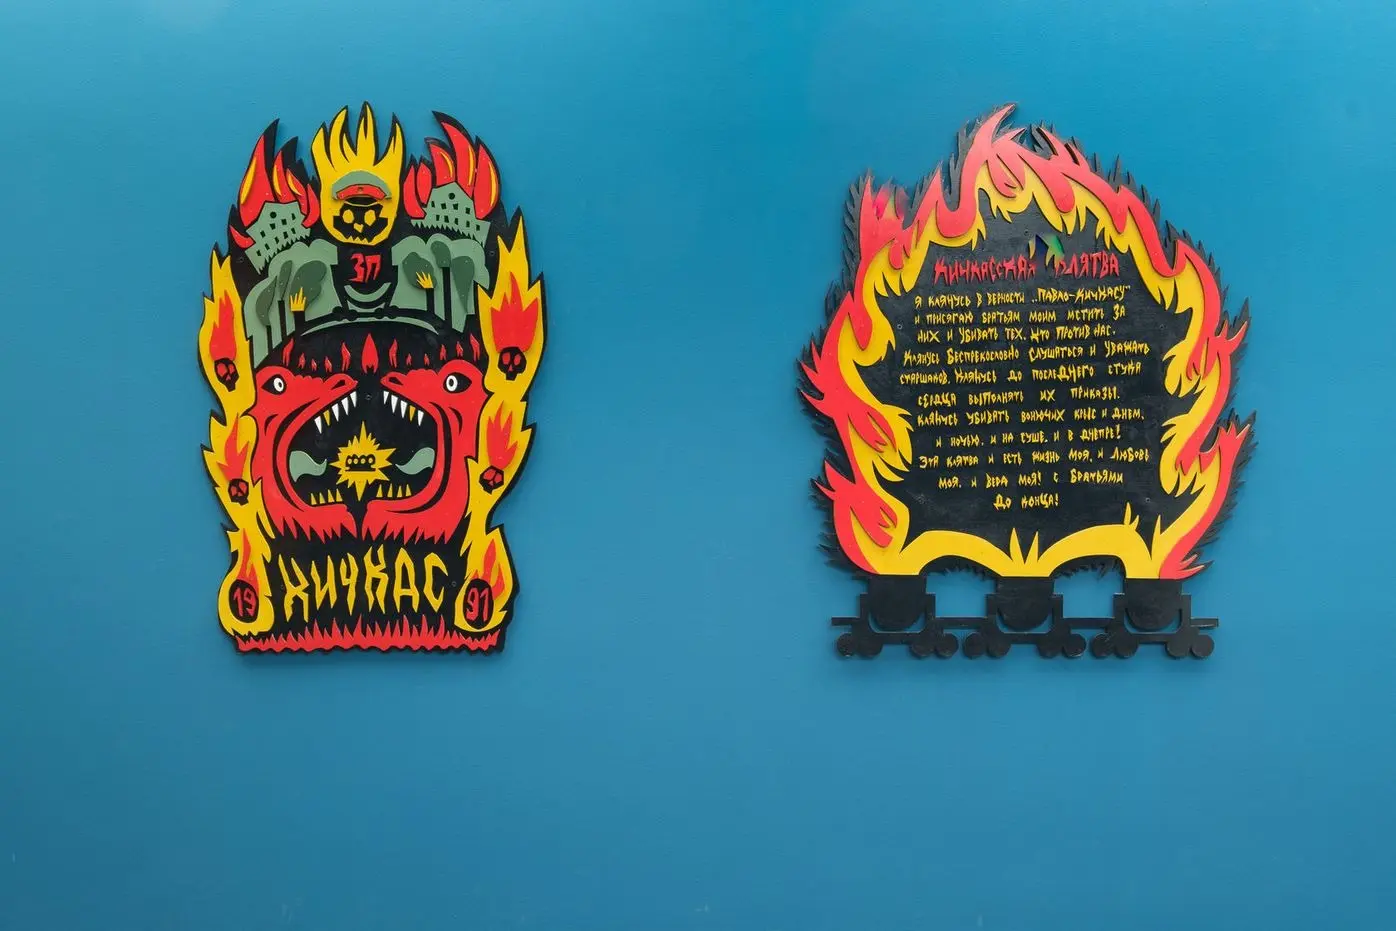 ЗП
КИЧКАС
19
91
КИЧКАССКАЯ КЛЯТВА
Я КЛЯНУСЬ В ВЕРНОСТИ „ПАВЛО-КИЧКАСУ"
И ПРИСЯГАЮ БРАТЬЯМ МОИМ МСТИТЬ ЗА
НИХ И УБИВАТЬ ТЕХ, КТО ПРОТИВ НАС.
КЛЯНУСЬ БЕСПРЕКОСЛОВНО СЛУШАТЬСЯ И УВАЖАТЬ
СТАРШАКОВ. КЛЯНУСЬ ДО ПОСЛЕДНЕГО СТУКА
СЕРДЦА ВЫПОЛНЯТЬ ИХ ПРИКАЗЫ.
КЛЯНУСЬ УБИВАТЬ ВОНЮЧИХ КРЫС И ДНЕМ,
И НОЧЬЮ, И НА СУШЕ, И В ДНЕПРЕ!
ЭТА КЛЯТВА И ЕСТЬ ЖИЗНЬ МОЯ, И ЛЮБОВЬ
МОЯ, И ВЕРА МОЯ! С БРАТЬЯМИ
ДО КОНЦА!